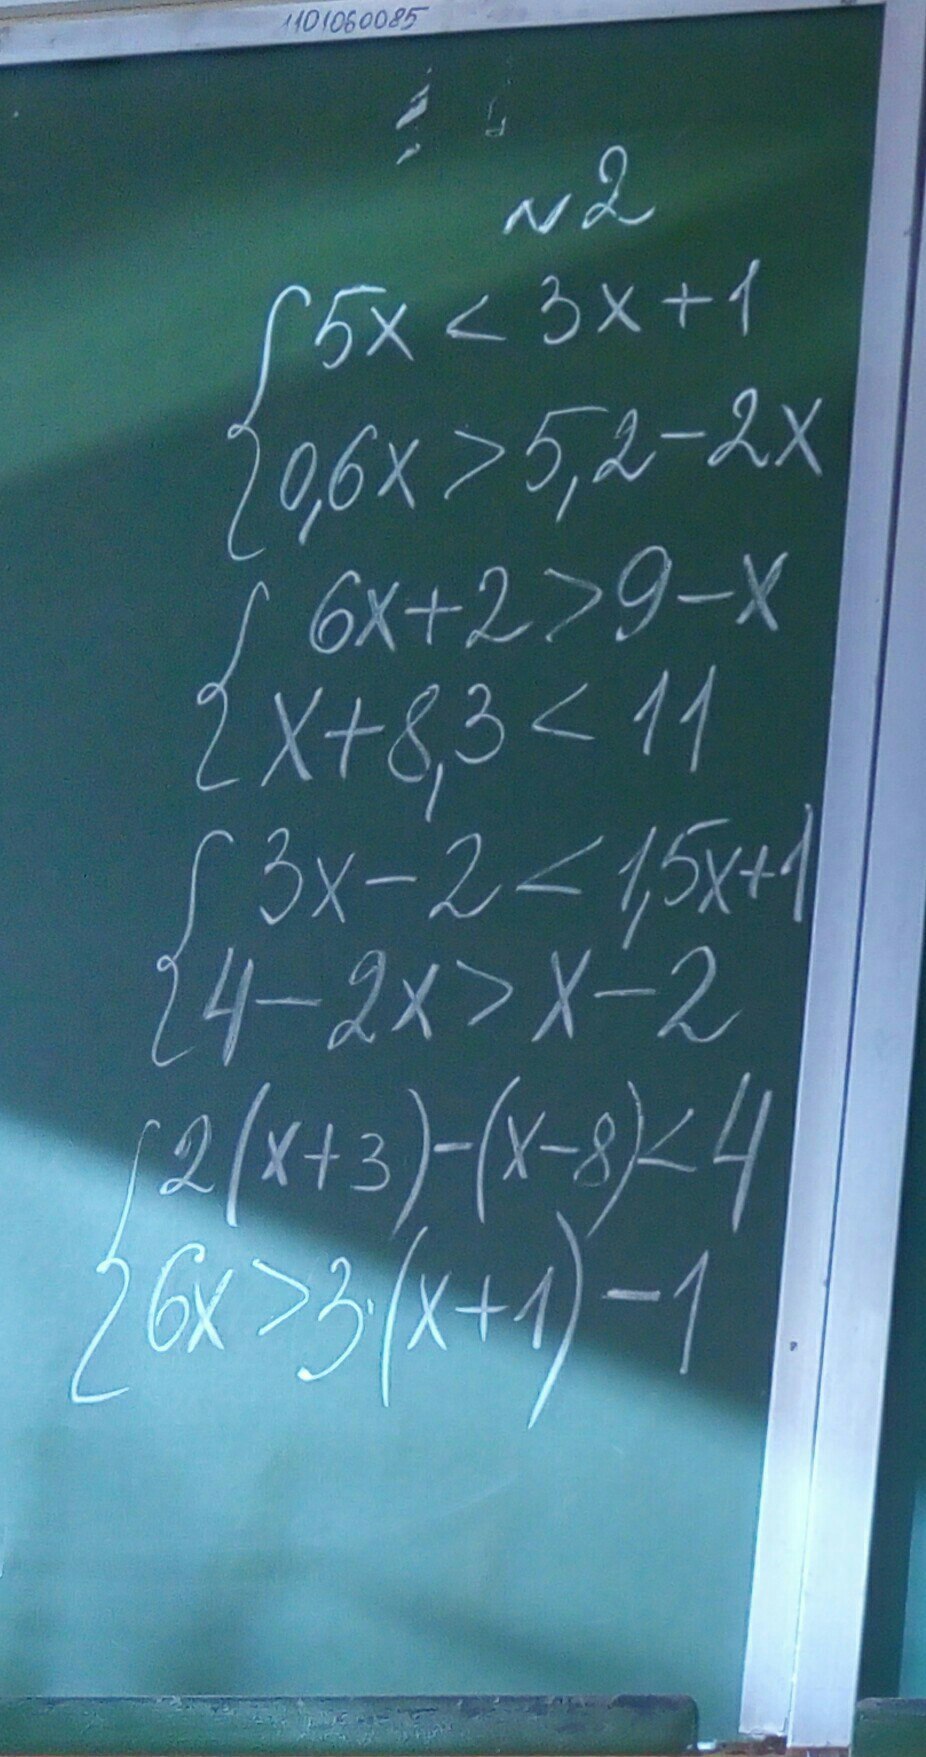 1101060085
N2
5x < 3x + 1
0,6x > 5,2 - 2x
6x + 2 > 9 - x
x + 8,3 < 11
3x - 2 < 1,5x + 1
4 - 2x > x - 2
2(x+3) - (x-8) < 4
6x > 3·(x+1) - 1